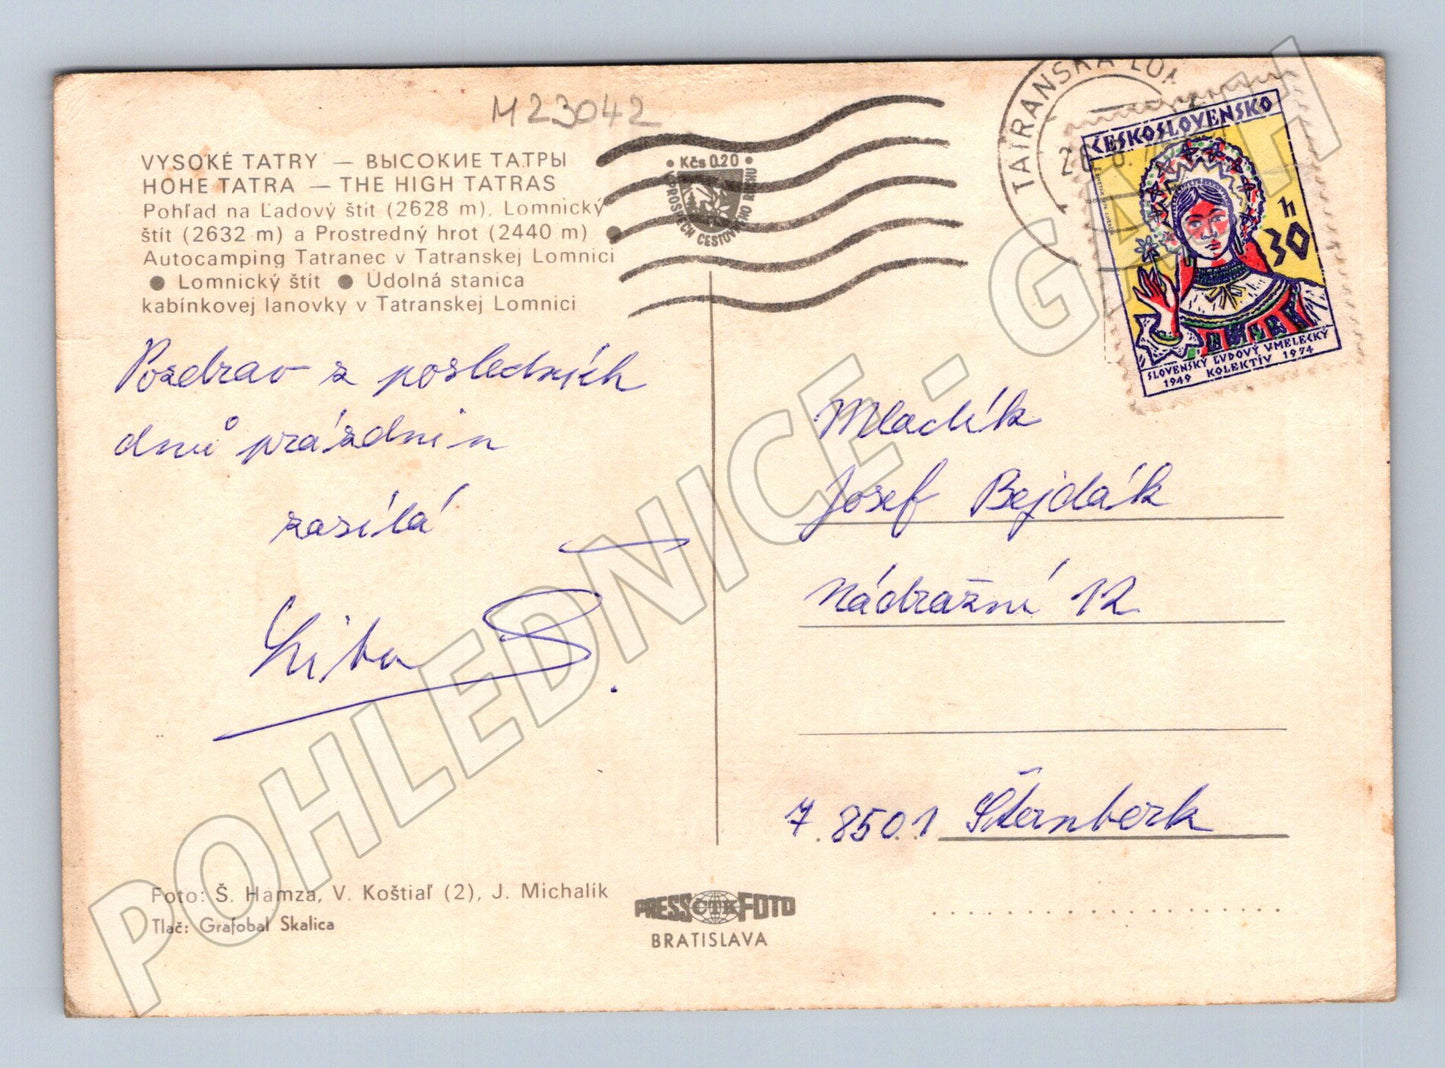 M23042
VYSOKÉ TATRY — ВЫСОКИЕ ТАТРЫ
HOHE TATRA — THE HIGH TATRAS
Pohľad na Ľadový štít (2628 m), Lomnický
štít (2632 m) a Prostredný hrot (2440 m) ●
Autocamping Tatranec v Tatranskej Lomnici
● Lomnický štít ● Údolná stanica
kabínkovej lanovky v Tatranskej Lomnici
• Kčs 0.20 •
V PROSPECH CESTOVNÉHO RUCHU
TATRANSKÁ LOM
ČESKOSLOVENSKO
30 h
SLOVENSKÝ ĽUDOVÝ UMELECKÝ
1949 KOLEKTÍV 1974
Pozdrav z posledních
dnů prázdnin
zasílá
Liba
Mladík
Josef Bejdák
Nádražní 12
78501 Šternberk
Foto: Š. Hamza, V. Koštiaľ (2), J. Michalík
Tlač: Grafobal Skalica
PRESS ČTK FOTO
BRATISLAVA
POHLEDNICE - GALAH